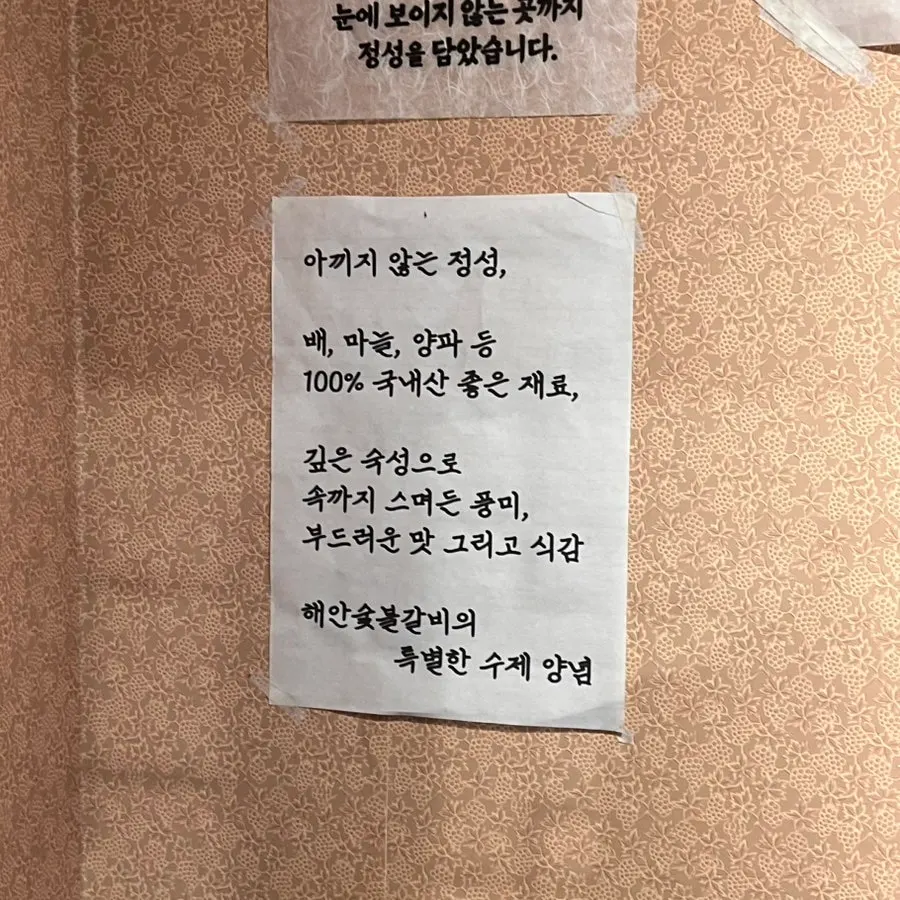 눈에 보이지 않는 곳까지
정성을 담았습니다.
아끼지 않는 정성,
배, 마늘, 양파 등
100% 국내산 좋은 재료,
깊은 숙성으로
속까지 스며든 풍미,
부드러운 맛 그리고 식감
해안숯불갈비의
특별한 수제 양념